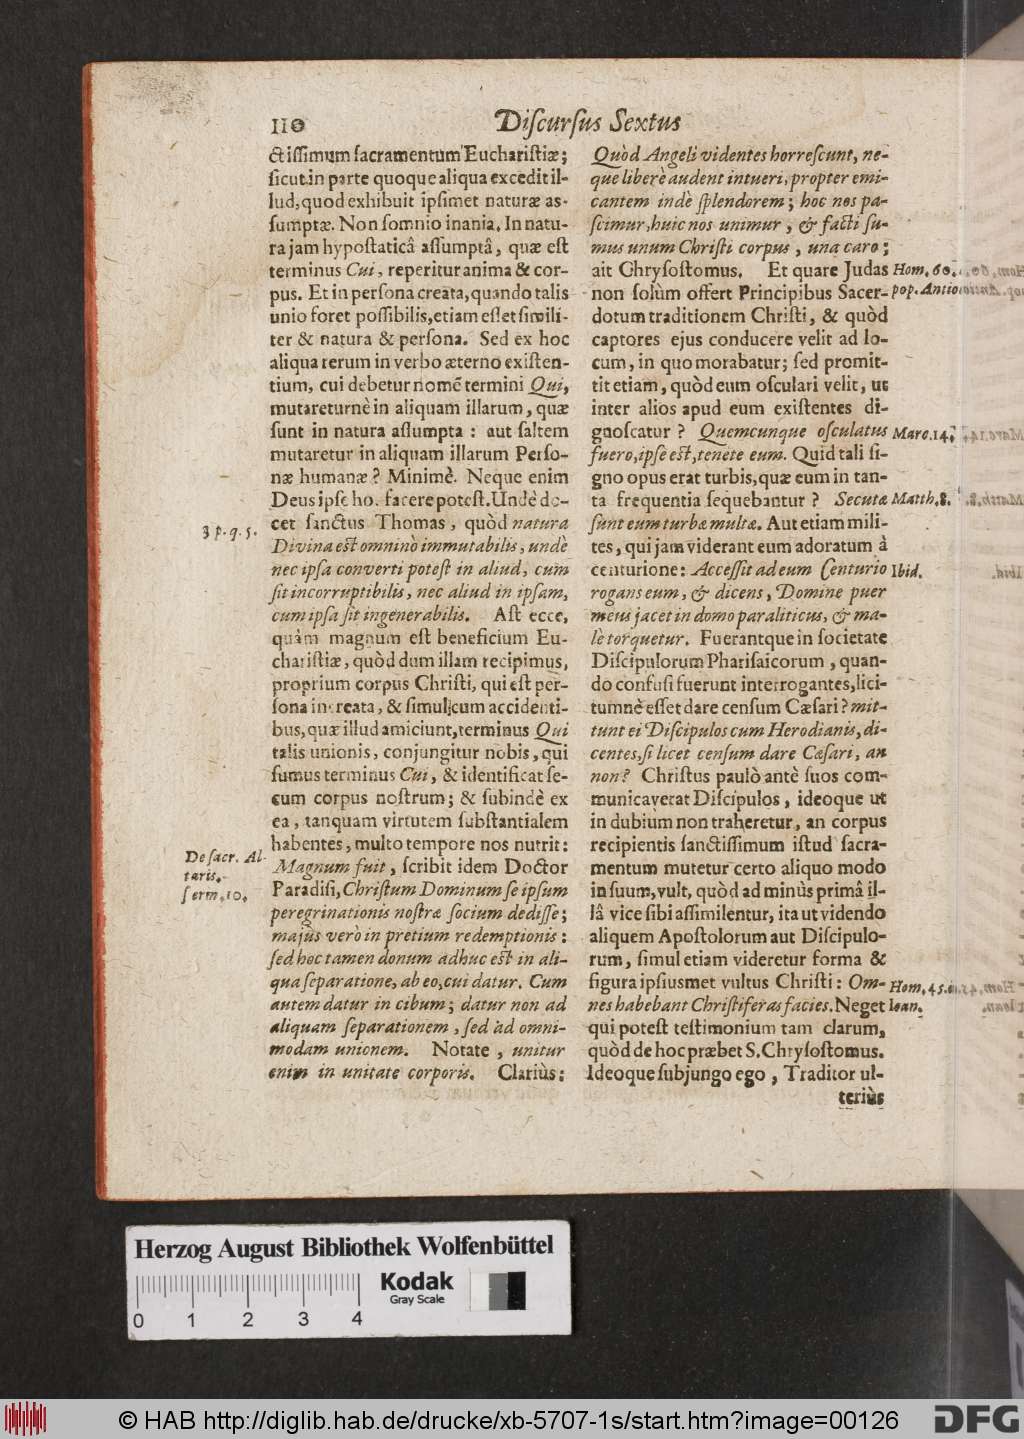 110
Diſcurſus Sextus
ctiſſimum ſacramentum Euchariſtiæ;
ſicut in parte quoque aliqua excedit il-
lud, quod exhibuit ipſimet naturæ aſ-
ſumptæ. Non ſomnio inania. In natu-
ra jam hypoſtaticâ aſſumptâ, quæ eſt
terminus Cui, reperitur anima & cor-
pus. Et in perſona creata, quando talis
unio foret poſſibilis, etiam eſſet ſimili-
ter & natura & perſona. Sed ex hoc
aliqua rerum in verbo æterno exiſten-
tium, cui debetur nomē termini Qui,
mutareturnè in aliquam illarum, quæ
ſunt in natura aſſumpta : aut ſaltem
mutaretur in aliquam illarum Perſo-
næ humanæ? Minimè. Neque enim
Deus ipſe hoc facere poteſt. Undè do-
cet ſanctus Thomas, quòd natura
Divina eſt omninò immutabilis, undè
nec ipſa converti poteſt in aliud, cum
ſit incorruptibilis, nec aliud in ipſam,
cum ipſa ſit ingenerabilis. Aſt ecce,
quàm magnum eſt beneficium Eu-
chariſtiæ, quòd dum illam recipimus,
proprium corpus Chriſti, qui eſt per-
ſona increata, & ſimul cum accidenti-
bus, quæ illud amiciunt, terminus Qui
talis unionis, conjungitur nobis, qui
ſumus terminus Cui, & identificat ſe-
cum corpus noſtrum; & ſubindè ex
ea, tanquam virtutem ſubſtantialem
habentes, multo tempore nos nutrit:
Magnum fuit, ſcribit idem Doctor
Paradiſi, Chriſtum Dominum ſe ipſum
peregrinationis noſtræ ſocium dediſſe;
majùs verò in pretium redemptionis:
ſed hoc tamen donum adhuc eſt in ali-
qua ſeparatione, ab eo, cui datur. Cum
autem datur in cibum; datur non ad
aliquam ſeparationem, ſed ad omni-
modam unionem. Notate, unitur
enim in unitate corporis. Clariùs:
3 p. q. 5.
De ſacr. Al-
taris.
ſerm. 10.
Quòd Angeli videntes horreſcunt, ne-
que liberè audent intueri, propter emi-
cantem indè ſplendorem; hoc nos pa-
ſcimur, huic nos unimur, & facti ſu-
mus unum Chriſti corpus, una caro;
ait Chryſoſtomus. Et quare Judas
non ſolùm offert Principibus Sacer-
dotum traditionem Chriſti, & quòd
captores ejus conducere velit ad lo-
cum, in quo morabatur; ſed promit-
tit etiam, quòd eum oſculari velit, ut
inter alios apud eum exiſtentes di-
gnoſcatur? Quemcunque oſculatus
fuero, ipſe eſt, tenete eum. Quid tali ſi-
gno opus erat turbis, quæ eum in tan-
ta frequentia ſequebantur? Secutæ
ſunt eum turbæ multæ. Aut etiam mili-
tes, qui jam viderant eum adoratum à
centurione: Acceſſit ad eum Centurio
rogans eum, & dicens, Domine puer
meus jacet in domo paraliticus, & ma-
lè torquetur. Fuerantque in ſocietate
Diſcipulorum Phariſaicorum, quan-
do confuſi fuerunt interrogantes, lici-
tumnè eſſet dare cenſum Cæſari? mit-
tunt ei Diſcipulos cum Herodianis, di-
centes, ſi licet cenſum dare Cæſari, an
non? Chriſtus paulò antè ſuos com-
municaverat Diſcipulos, ideoque ut
in dubium non traheretur, an corpus
recipientis ſanctiſſimum iſtud ſacra-
mentum mutetur certo aliquo modo
in ſuum, vult, quòd ad minùs primâ il-
lâ vice ſibi aſſimilentur, ita ut videndo
aliquem Apoſtolorum aut Diſcipulo-
rum, ſimul etiam videretur forma &
figura ipſiusmet vultus Chriſti: Om-
nes habebant Chriſtiferas facies. Neget
qui poteſt teſtimonium tam clarum,
quòd de hoc præbet S. Chryſoſtomus.
Ideoque ſubjungo ego, Traditor ul-
teriùs
Hom. 60.
pop. Antio
Marc. 14.
Matth. 8.
Ibid.
Hom. 45. in
Ioan.
Herzog August Bibliothek Wolfenbüttel
0 1 2 3 4
Kodak
Gray Scale
© HAB http://diglib.hab.de/drucke/xb-5707-1s/start.htm?image=00126
DFG